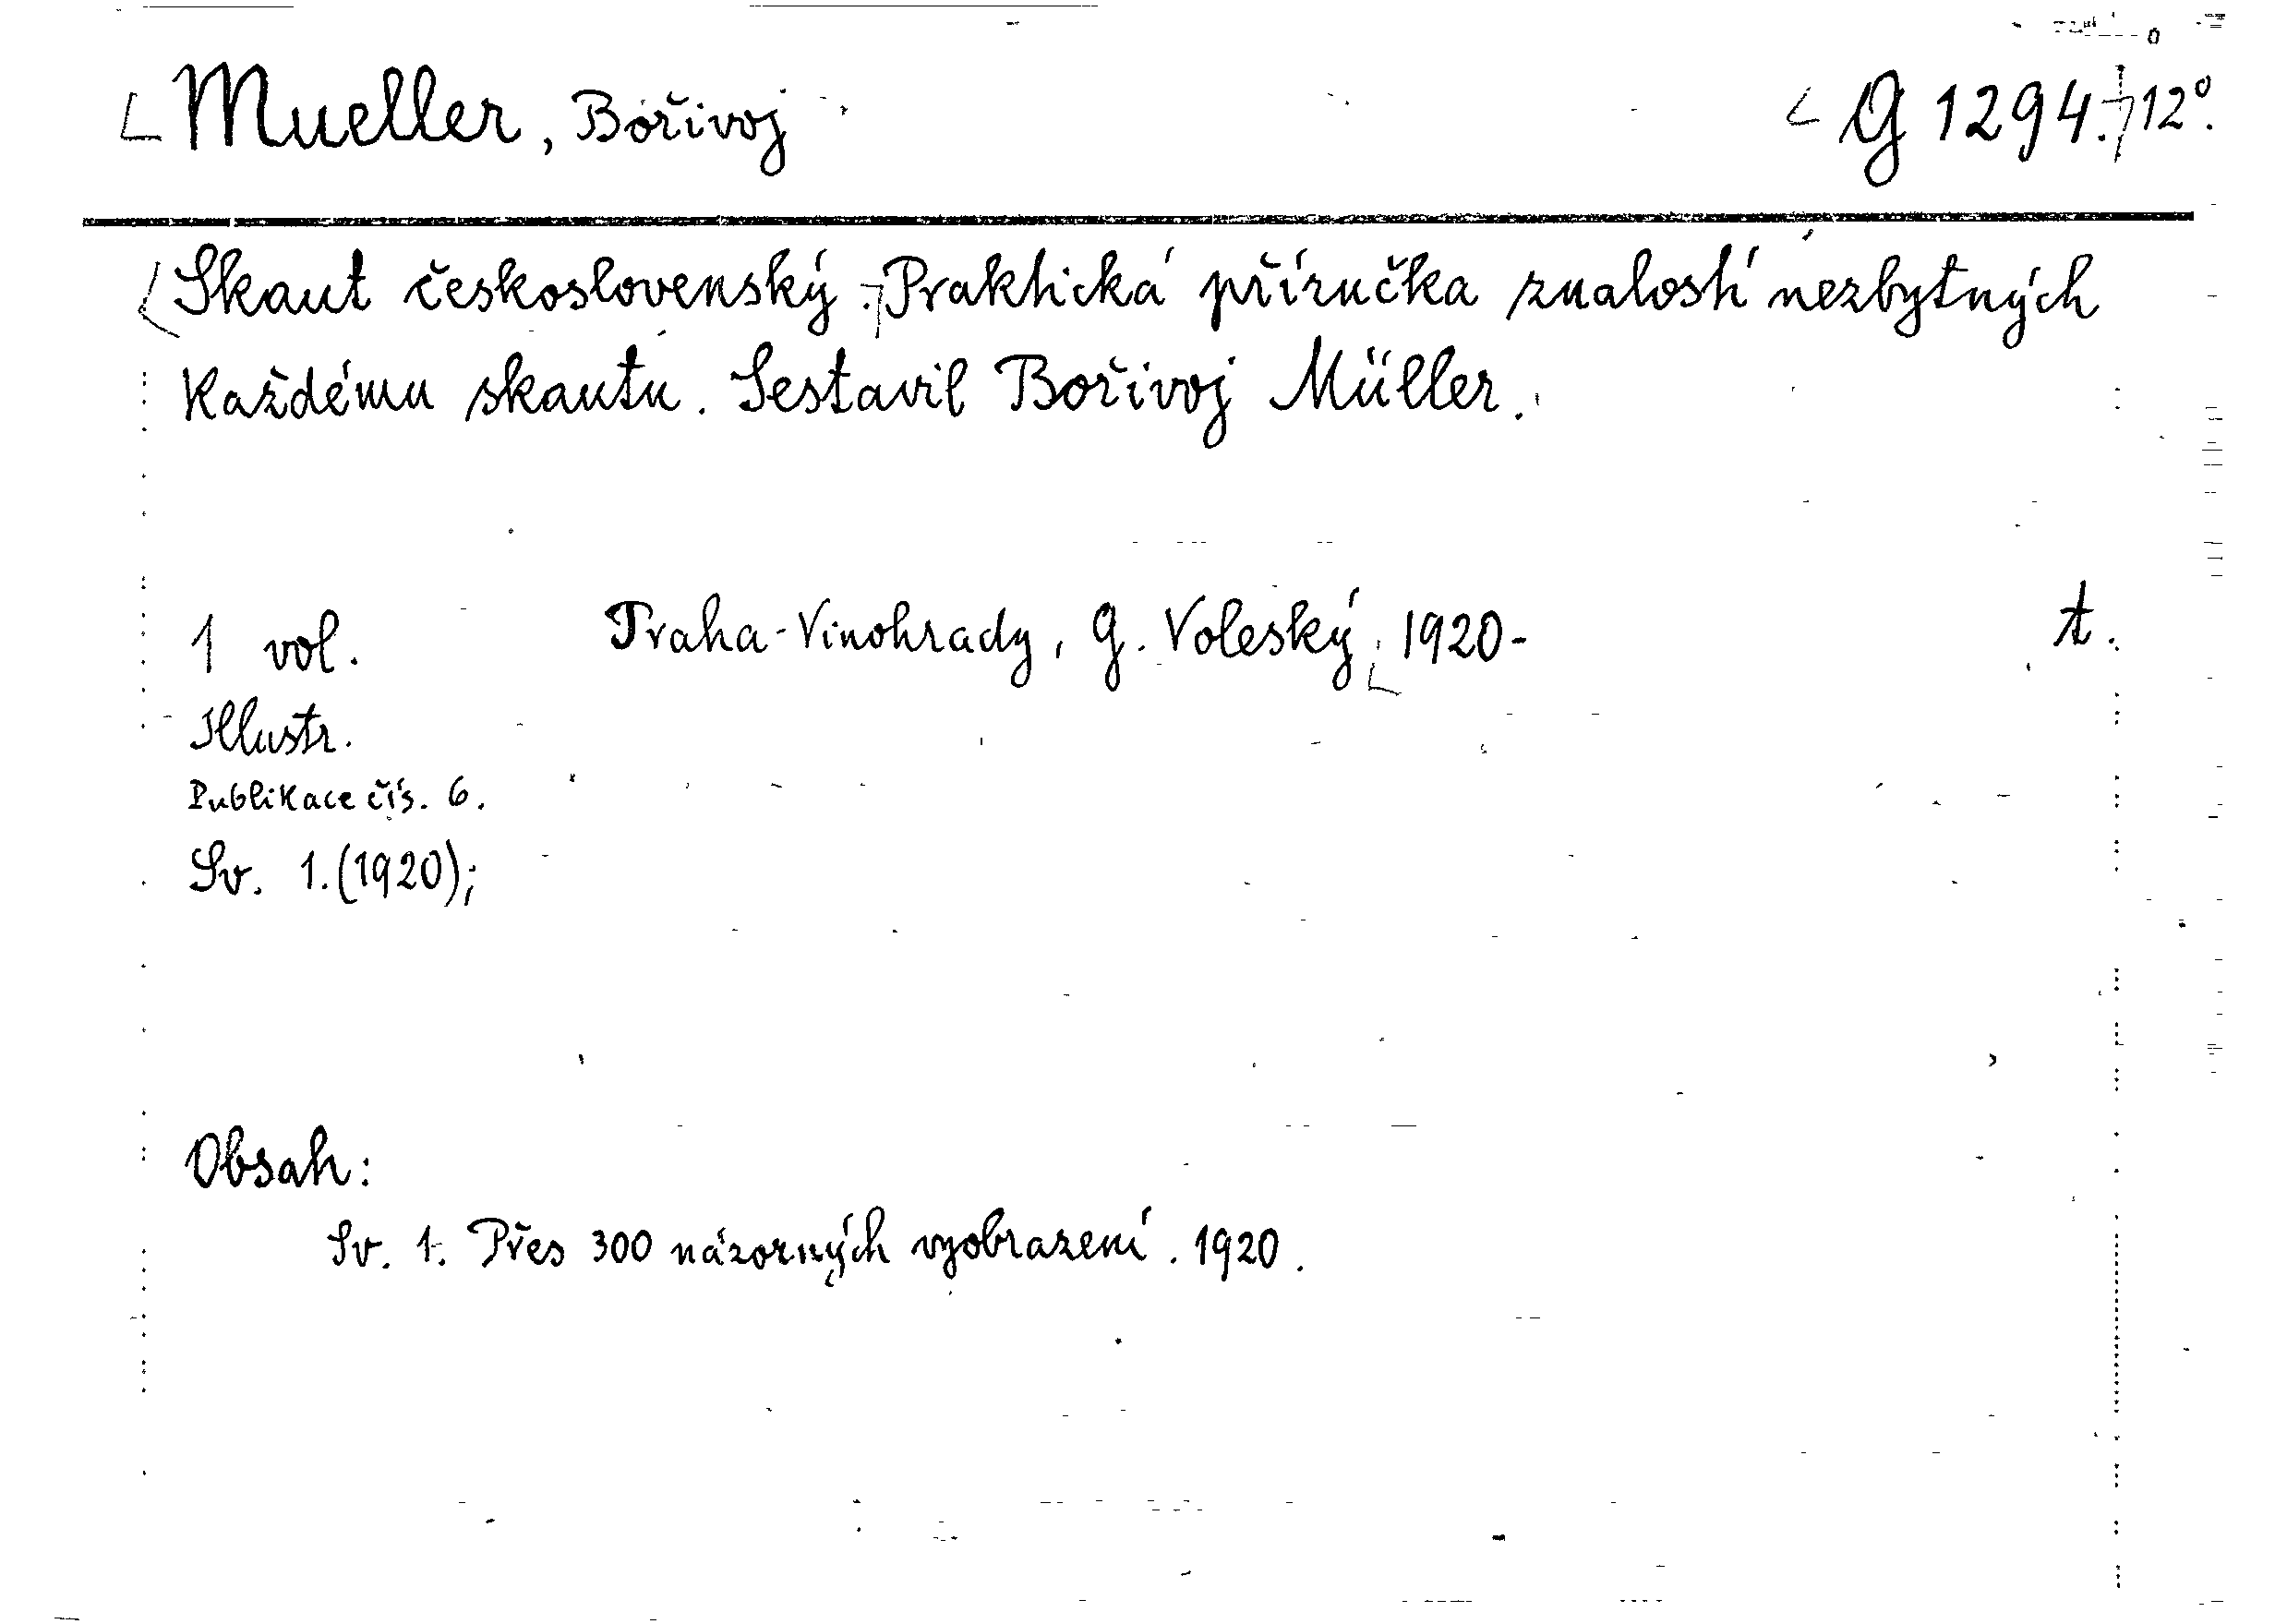 Mueller, Bořivoj
G 1294. 12°.
Skaut československý. Praktická příručka znalostí nezbytných
každému skautu. Sestavil Bořivoj Müller.
1 vol. Praha-Vinohrady, G. Voleský, 1920- t.
Illustr.
Publikace čís. 6.
Sv. 1.(1920);
Obsah:
Sv. 1. Přes 300 názorných vyobrazení. 1920.